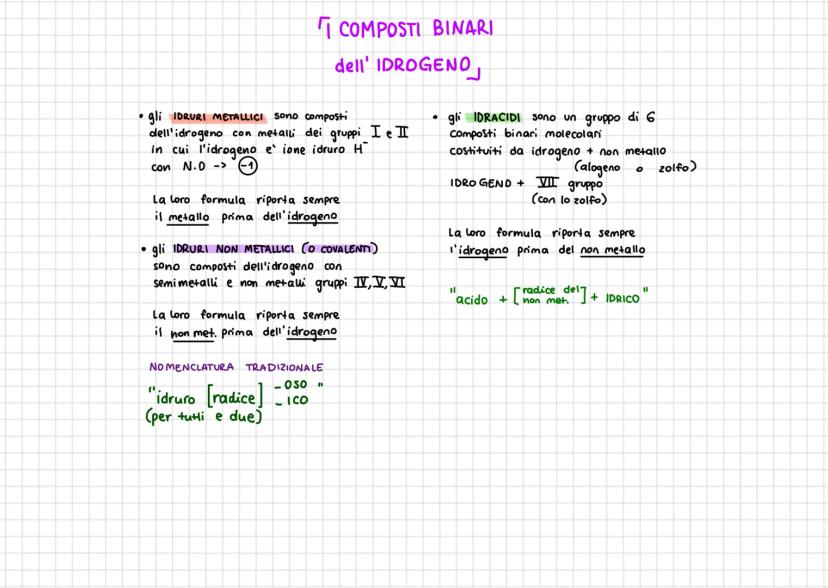 「I COMPOSTI BINARI
dell'IDROGENO」
• gli IDRURI METALLICI sono composti
dell'idrogeno con metalli dei gruppi I e II
in cui l'idrogeno e' ione idruro H⁻
con N.O -> (-1)
La loro formula riporta sempre
il metallo prima dell'idrogeno
• gli IDRURI NON METALLICI (O COVALENTI)
sono composti dell'idrogeno con
semimetalli e non metalli gruppi IV, V, VI
La loro formula riporta sempre
il non met. prima dell'idrogeno
NOMENCLATURA TRADIZIONALE
"idruro [radice] -OSO "
-ICO
(per tutti e due)
• gli IDRACIDI sono un gruppo di 6
composti binari molecolari
costituiti da idrogeno + non metallo
(alogeno o zolfo)
IDROGENO + VII gruppo
(con lo zolfo)
La loro formula riporta sempre
l'idrogeno prima del non metallo
"acido + [radice del non met.] + IDRICO"